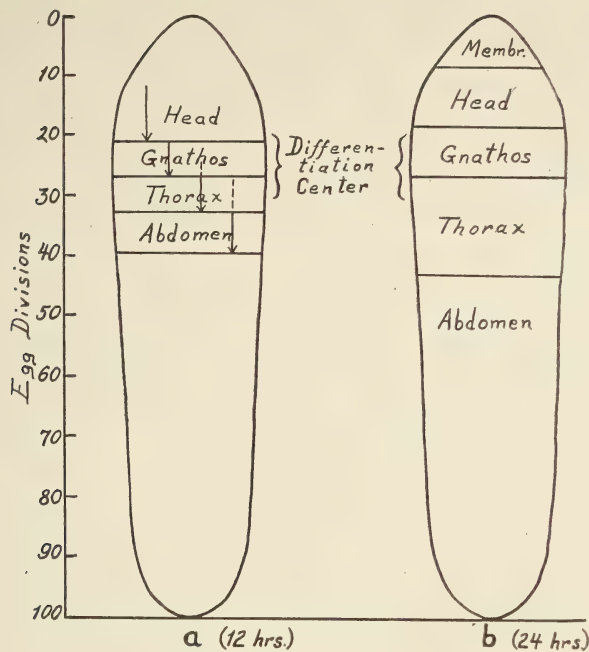 Egg Divisions
0
10
20
30
40
50
60
70
80
90
100
Head
Gnathos
Thorax
Abdomen
Differen-
tiation
Center
Membr.
Head
Gnathos
Thorax
Abdomen
a (12 hrs.)
b (24 hrs.)